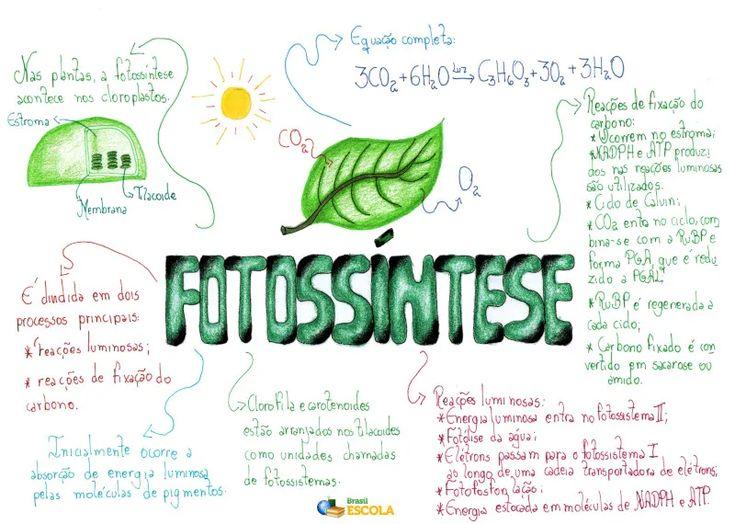 Nas plantas, a fotossíntese
acontece nos cloroplastos.
Estroma
Tilacoide
Membrana
Equação completa:
3CO₂+6H₂O luz→ C₃H₆O₃+3O₂+3H₂O
CO₂
O₂
FOTOSSÍNTESE
Reações de fixação do
carbono:
* Ocorrem no estroma;
* NADPH e ATP produzi
dos nas reações luminosas
são utilizados.
* Ciclo de Calvin;
* CO₂ entra no ciclo, com
bina-se com a RuBP e
forma PGA, que é redu
zido a PGAL.
* RuBP é regenerada a
cada ciclo;
* Carbono fixado é con
vertido em sacarose ou
amido.
É dividida em dois
processos principais:
* reações luminosas;
* reações de fixação do
carbono.
Inicialmente ocorre a
absorção de energia luminosa
pelas moléculas de pigmentos.
Clorofila e carotenoides
estão arranjados nos tilacoides
como unidades chamadas
de fotossistemas.
Reações luminosas:
* Energia luminosa entra no fotossistema II;
* Fotólise da água;
* Elétrons passam para o fotossistema I
ao longo de uma cadeia transportadora de elétrons;
* Fotofosforilação;
* Energia estocada em moléculas de NADPH e ATP.
Brasil
ESCOLA